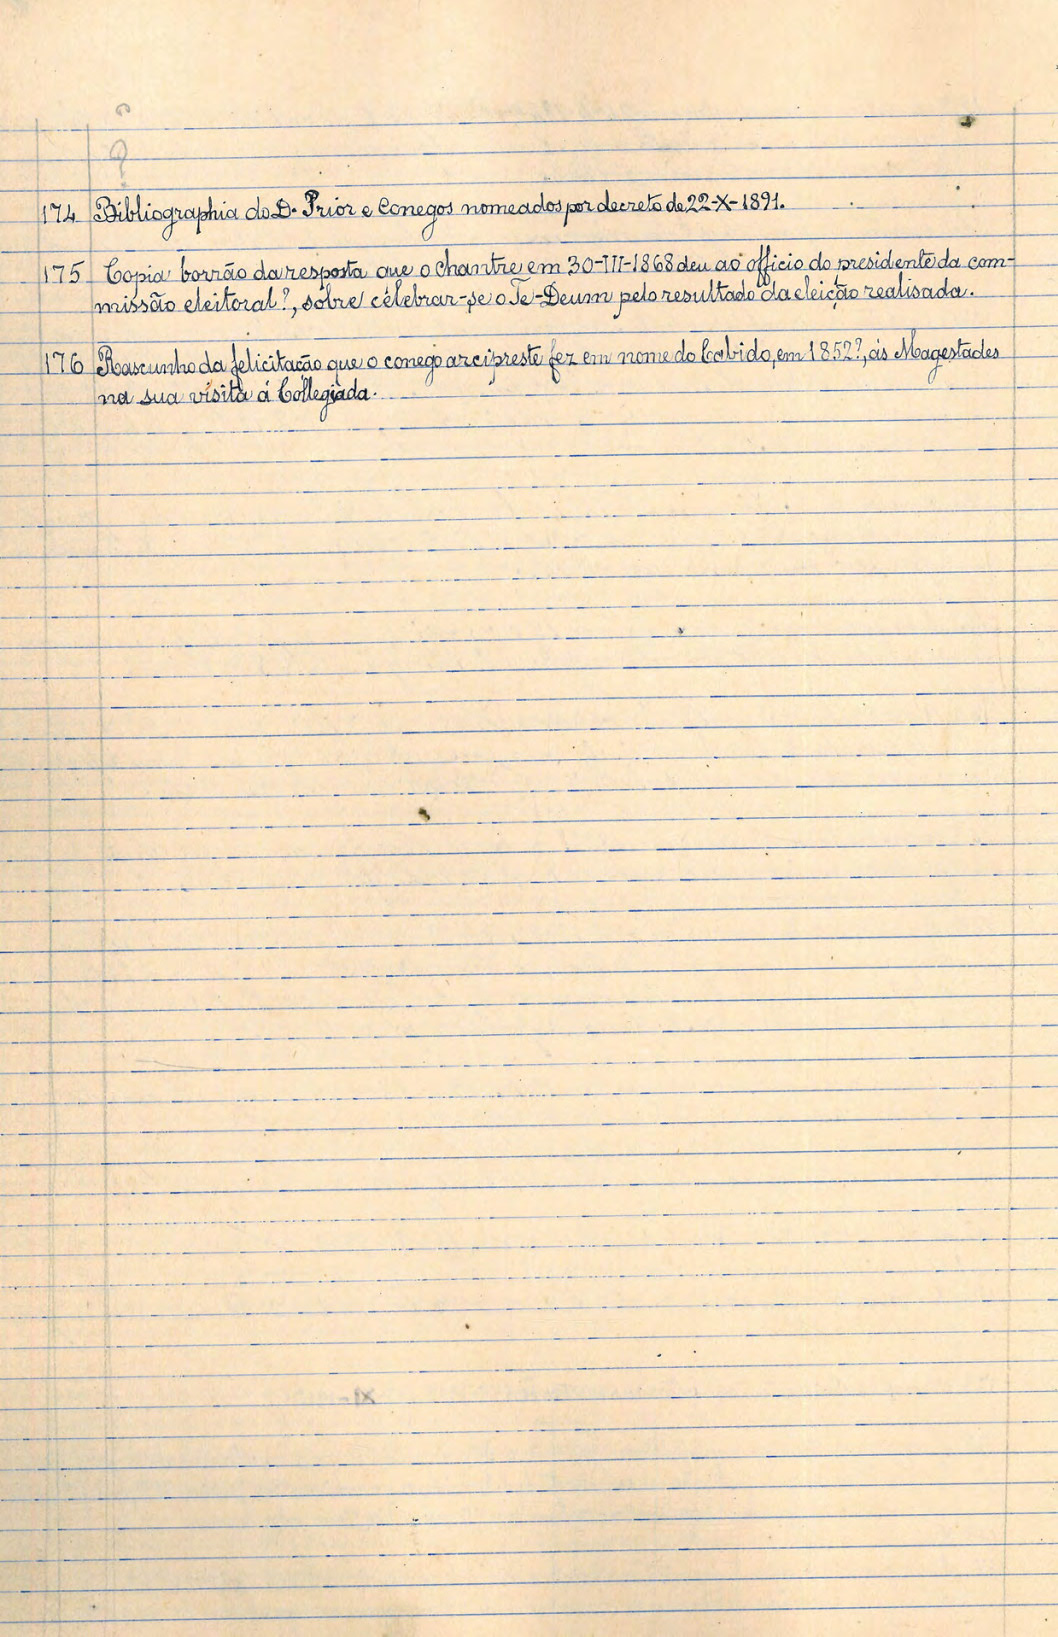 174 Bibliographia do D. Prior e Conegos nomeados por decreto de 22-X-1891.
175 Copia borrão da resposta que o chantre em 30-III-1868 deu ao officio do presidente da com-
missão eleitoral?, sobre celebrar-se o Te-Deum pelo resultado da eleição realisada.
176 Rascunho da felicitação que o conego arcipreste fez em nome do Cabido, em 1852?, ás Magestades
na sua visita á Collegiada.